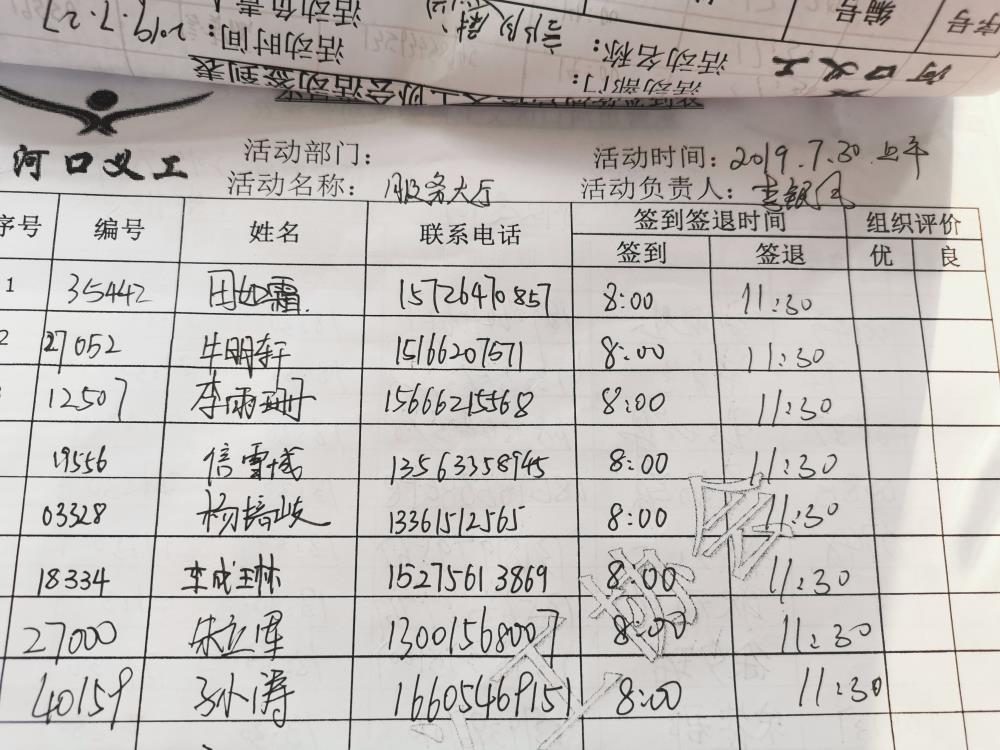 序号
编号
河口义工
活动名称:
活动部门:
活动时间: 2019.7.27
活动负责人
义工协会活动签到表
河口义工
活动部门:
活动时间: 2019.7.30 上午
活动名称: 服务大厅
活动负责人:
序号 编号 姓名 联系电话 签到签退时间 组织评价
签到 签退 优 良
1 35442 田如霜 15726470857 8:00 11:30
2 27052 牛明轩 15166207571 8:00 11:30
12507 李雨珊 15666215568 8:00 11:30
19556 信雪城 13563358945 8:00 11:30
03328 杨培岐 13361512565 8:00 11:30
18334 李成林 15275613869 8:00 11:30
27000 朱立军 13001568007 8:00 11:30
40159 小涛 16605469151 8:00 11:30